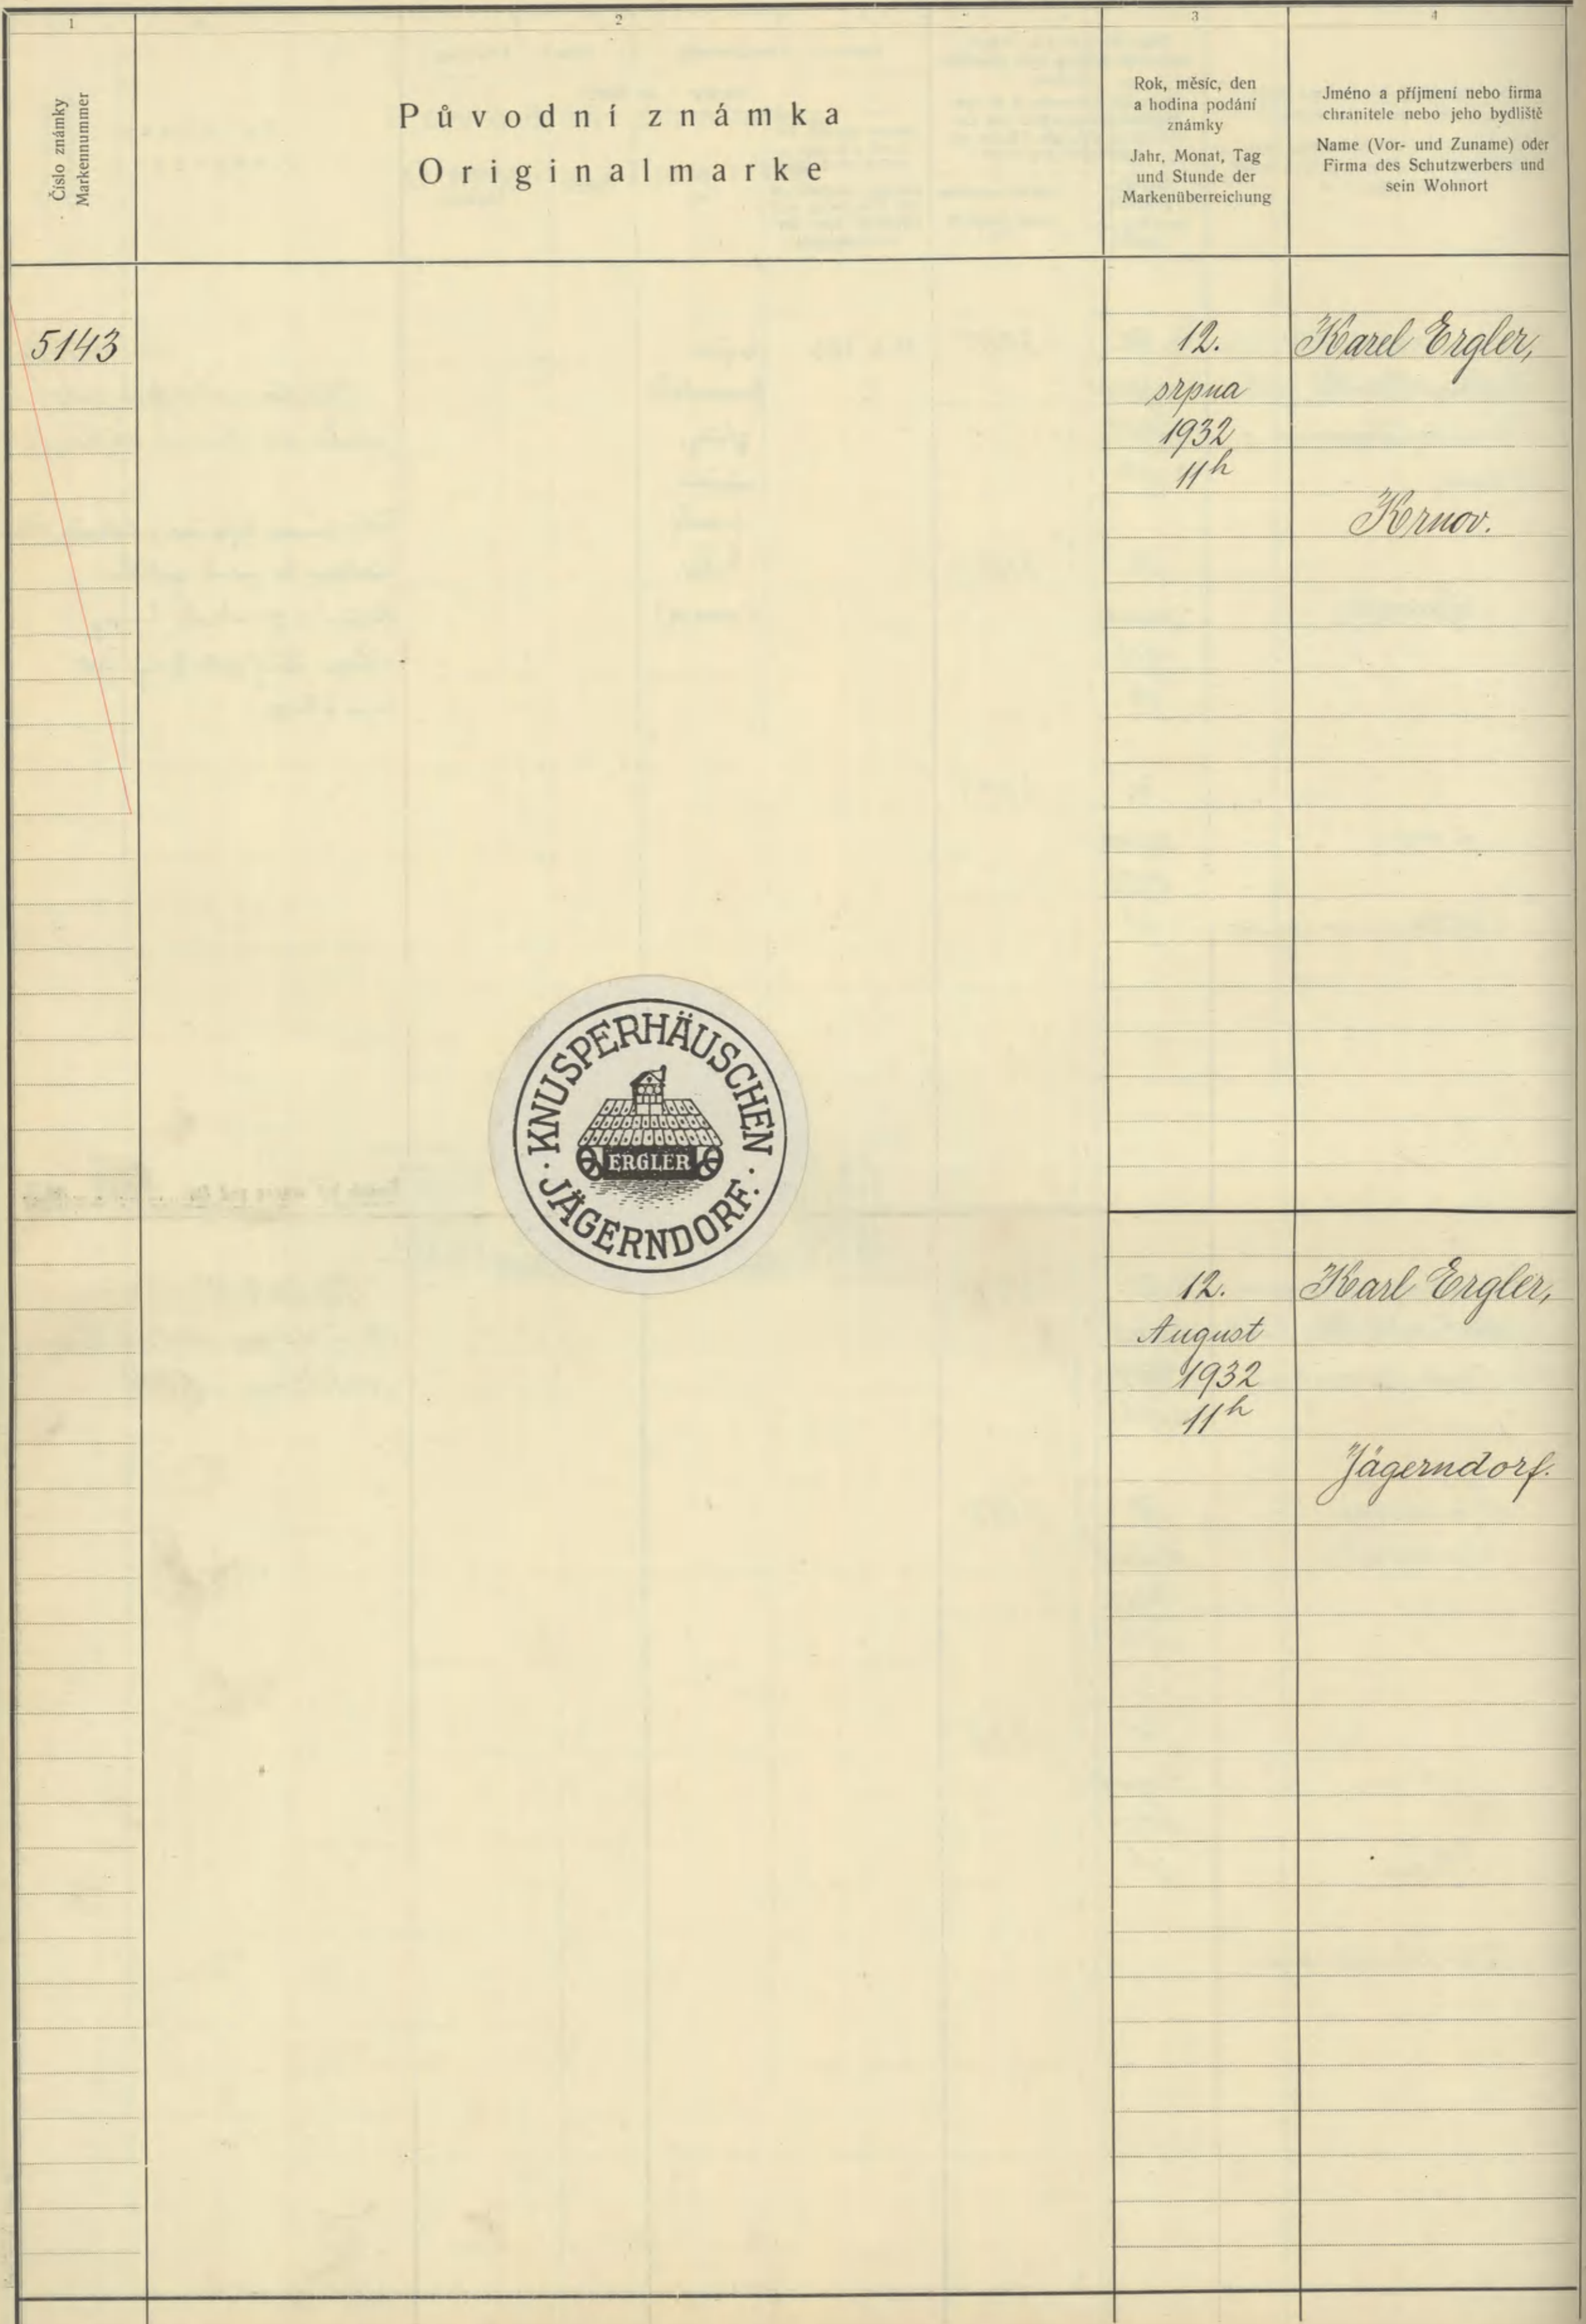 1
2
3
4
Číslo známky
Markennummer
Původní známka
Originalmarke
Rok, měsíc, den
a hodina podání
známky
Jahr, Monat, Tag
und Stunde der
Markenüberreichung
Jméno a příjmení nebo firma
chranitele nebo jeho bydliště
Name (Vor- und Zuname) oder
Firma des Schutzwerbers und
sein Wohnort
5143
12.
srpna
1932
11h
Karel Ergler,
Krnov.
· KNUSPERHÄUSCHEN ·
ERGLER
JÄGERNDORF.
12.
August
1932
11h
Karl Ergler,
Jägerndorf.